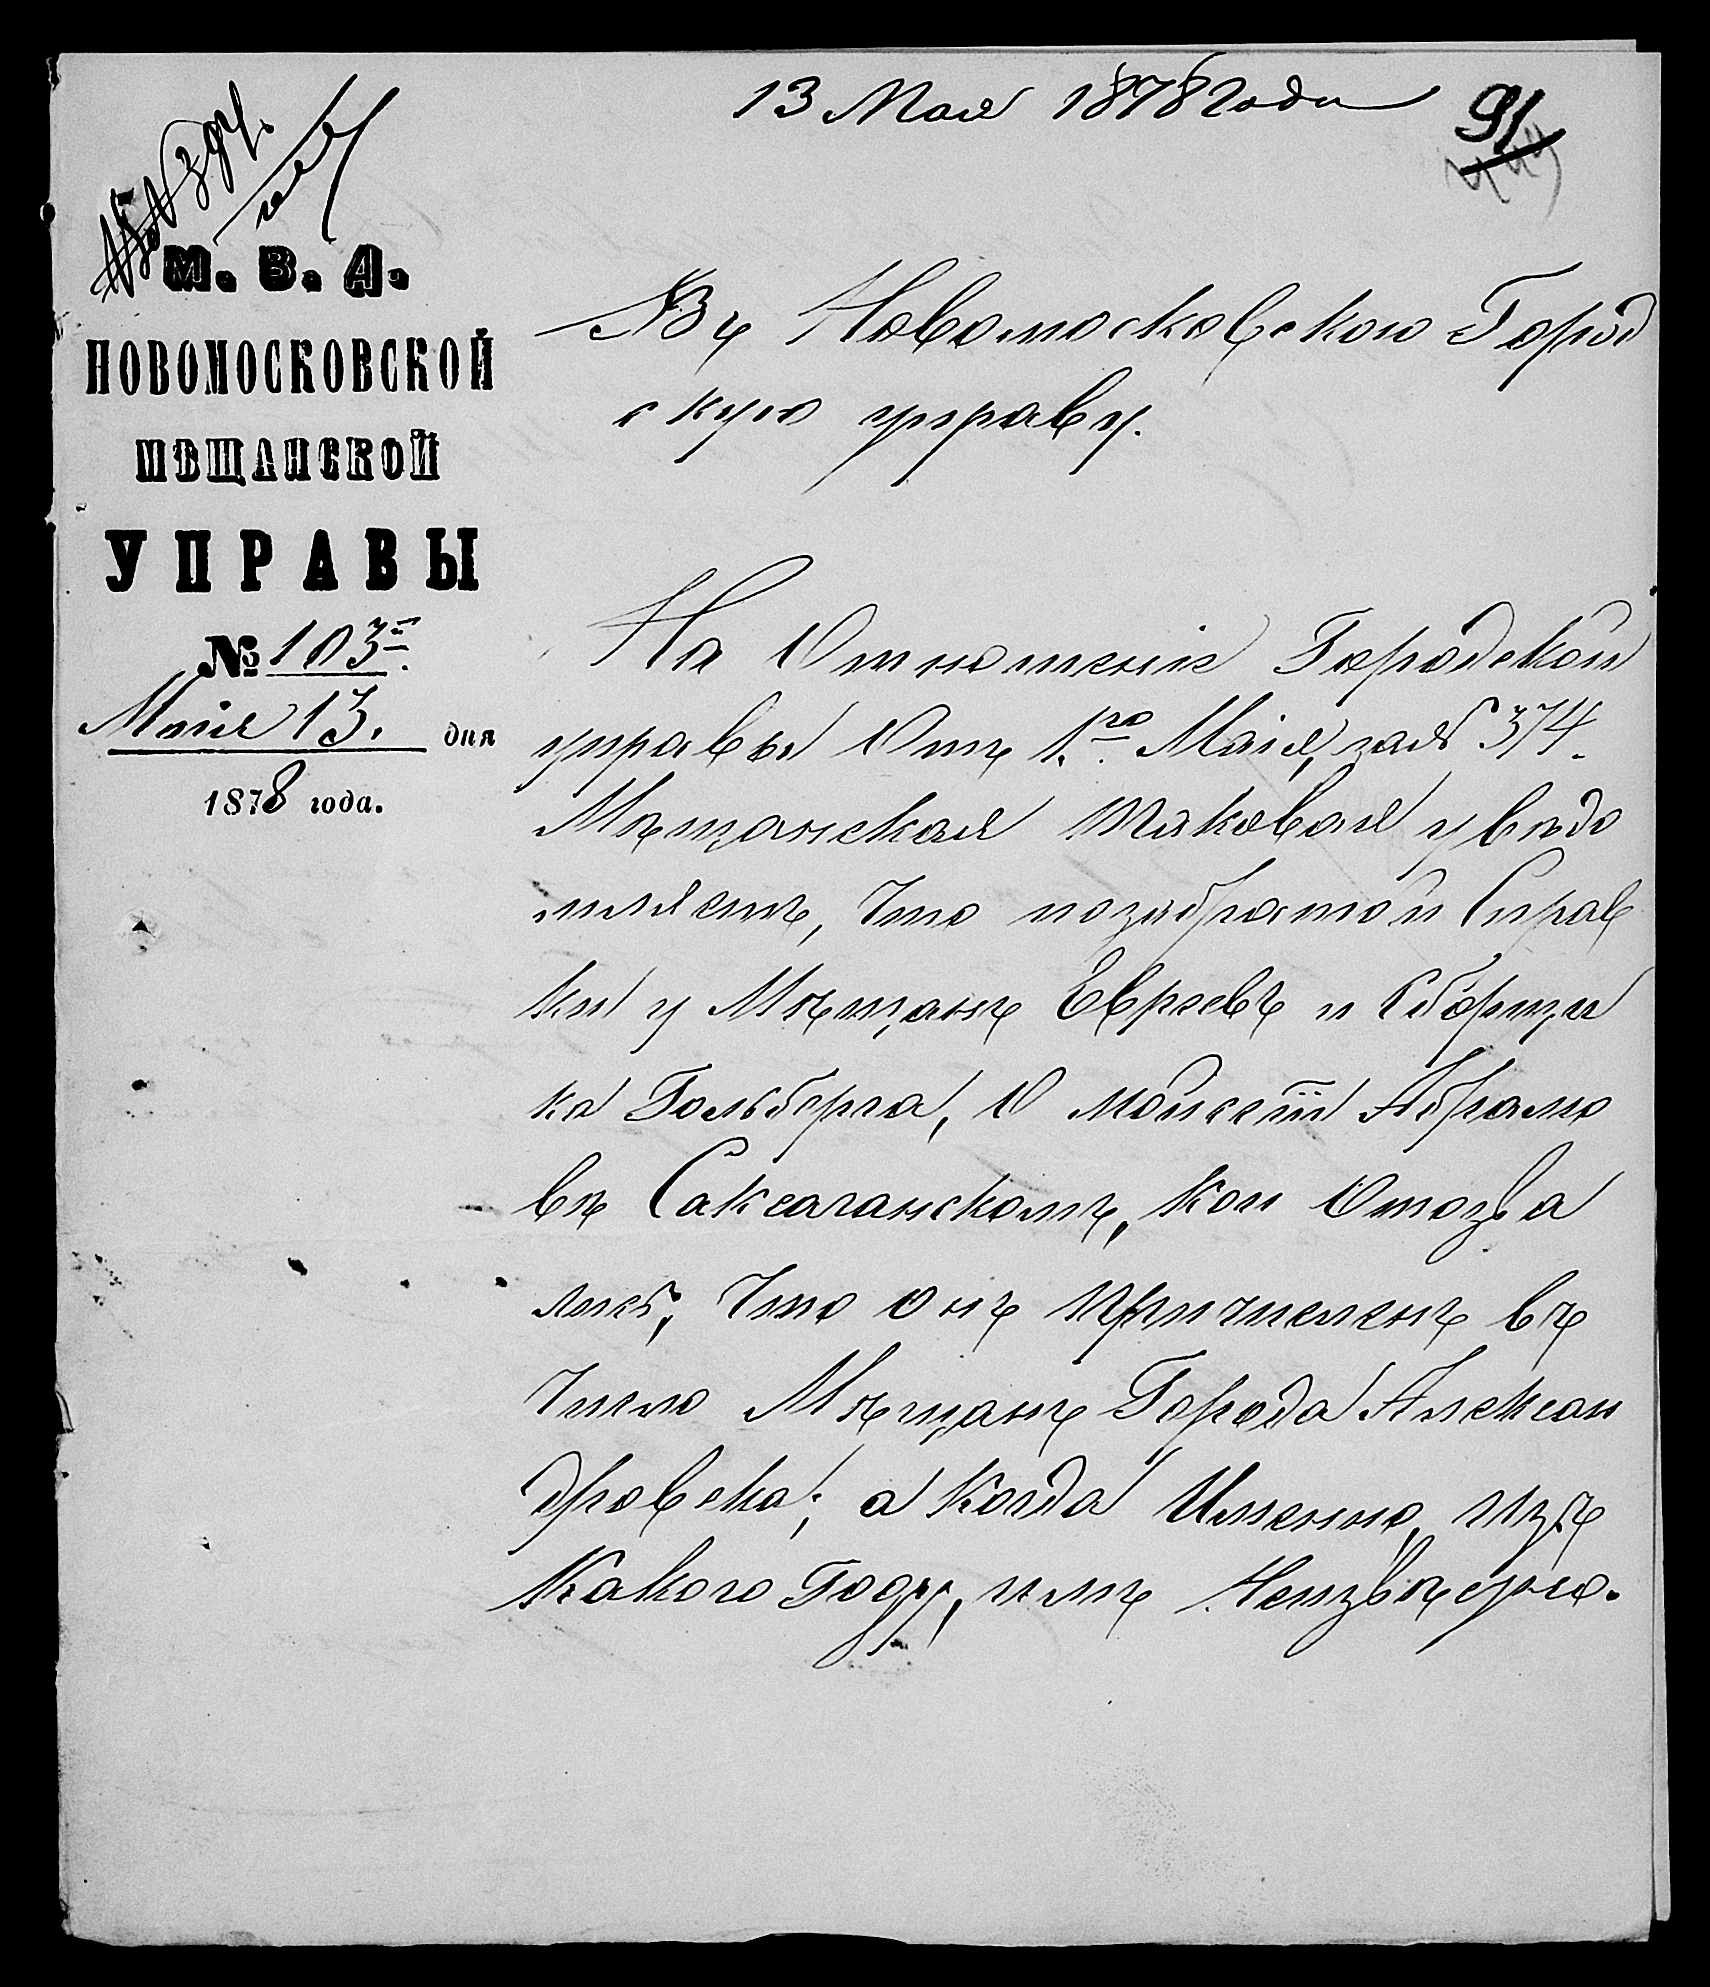 13 Мая 1878 Года
91
М. В. Д.
НОВОМОСКОВСКОЙ
МѢЩАНСКОЙ
УПРАВЫ
№ 103
Маія 13. дня
1878 года.
Въ Новомосковскою Город
скую управу.
На Отношеніе Городской
управы Отъ 1го Маія, за № 374.
Мѣщанская таковая увѣдо
мляетъ, что позабратой Справ
ки у Мѣщанъ Евреевъ и Сборщи
ка Гольберга, О Мойсеи Абрамо
вѣ Саксаганскомъ, кои Отозва
лись, что онъ причисленъ въ
число Мѣщанъ Города Алексан
дровска; а когда Именно, изъ
Какого Году, имъ Неизвѣстно.